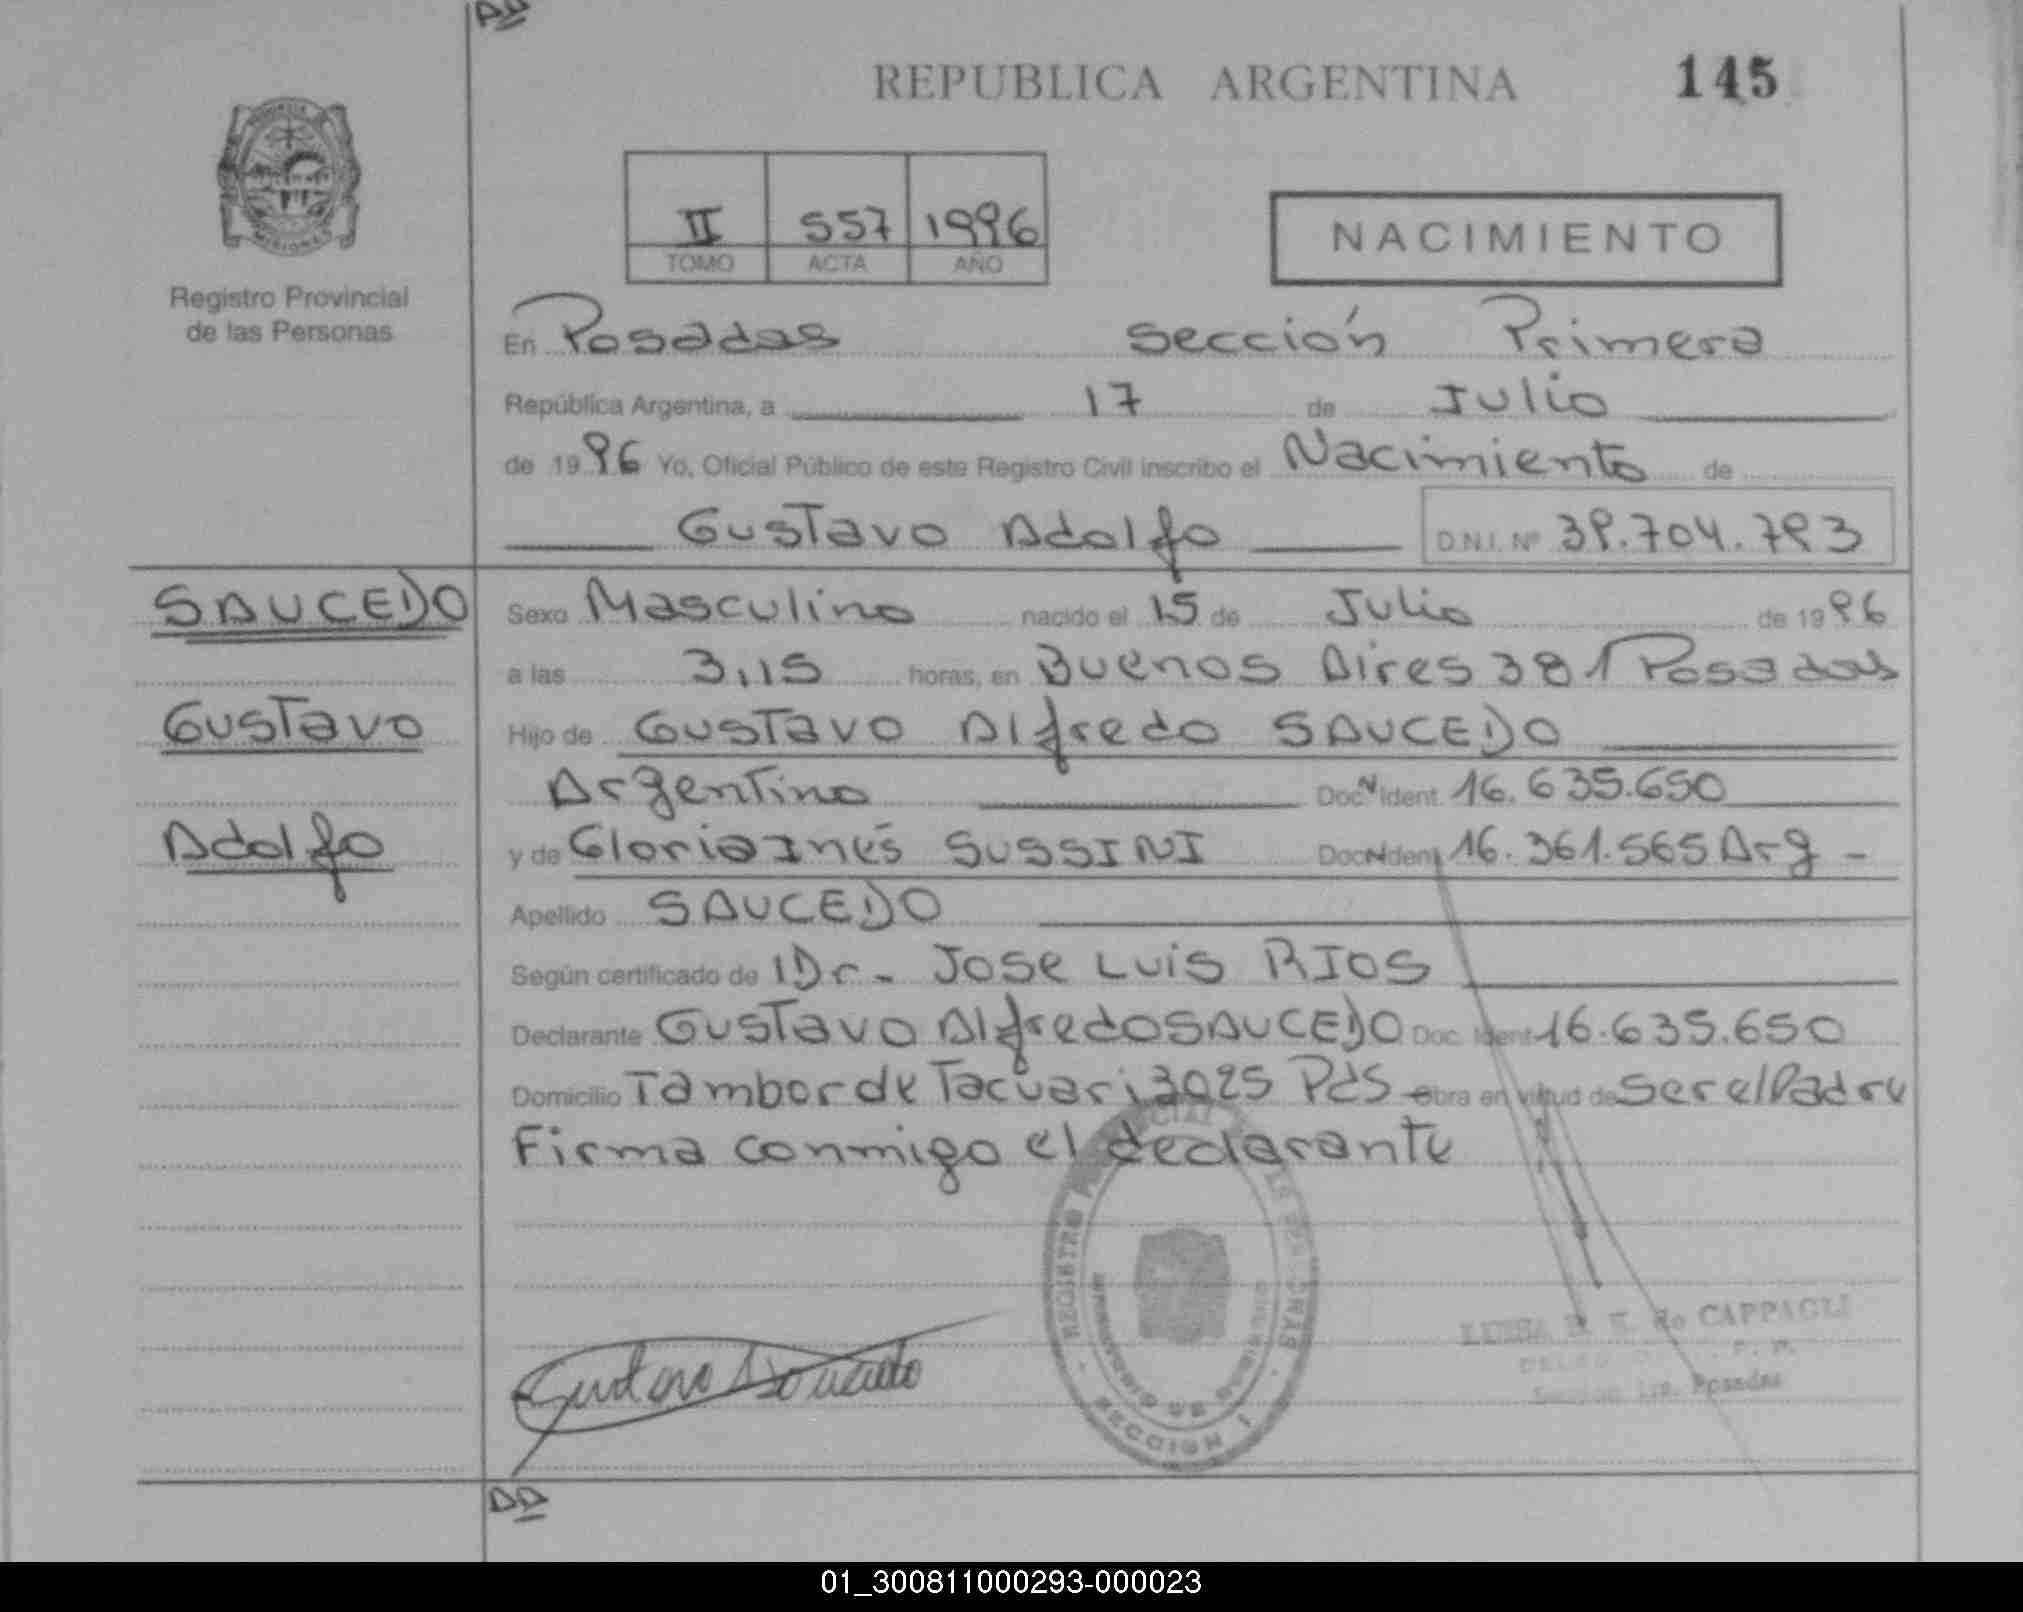 DD
REPUBLICA ARGENTINA 145
PROVINCIA
MISIONES
Registro Provincial
de las Personas
II 557 1996
TOMO ACTA AÑO
NACIMIENTO
En Posadas Sección Primera
República Argentina, a 17 de Julio
de 1996 Yo, Oficial Público de este Registro Civil inscribo el Nacimiento de
Gustavo Adolfo D.N.I. Nº 39.704.793
SAUCEDO
Gustavo
Adolfo
Sexo Masculino nacido el 15 de Julio de 1996
a las 3,15 horas, en Buenos Aires 381 Posadas
Hijo de Gustavo Alfredo SAUCEDO
Argentino Doc. Ident. 16.635.650
y de Gloria Inés SUSSINI Doc. Ident. 16.361.565 Arg -
Apellido SAUCEDO
Según certificado de Dr- Jose Luis RIOS
Declarante Gustavo Alfredo SAUCEDO Doc. Ident 16.635.650
Domicilio Tambor de Tacuari 3025 Pds - Obra en virtud de Ser el Padre
Firma conmigo el declarante
REGISTRO PROVINCIAL DE LAS PERSONAS
MINISTERIO DE GOBIERNO
SECCION 1
Gustavo Saucedo
de CAPPAGLI
Seccion 1ra. Posadas
DD
01_300811000293-000023